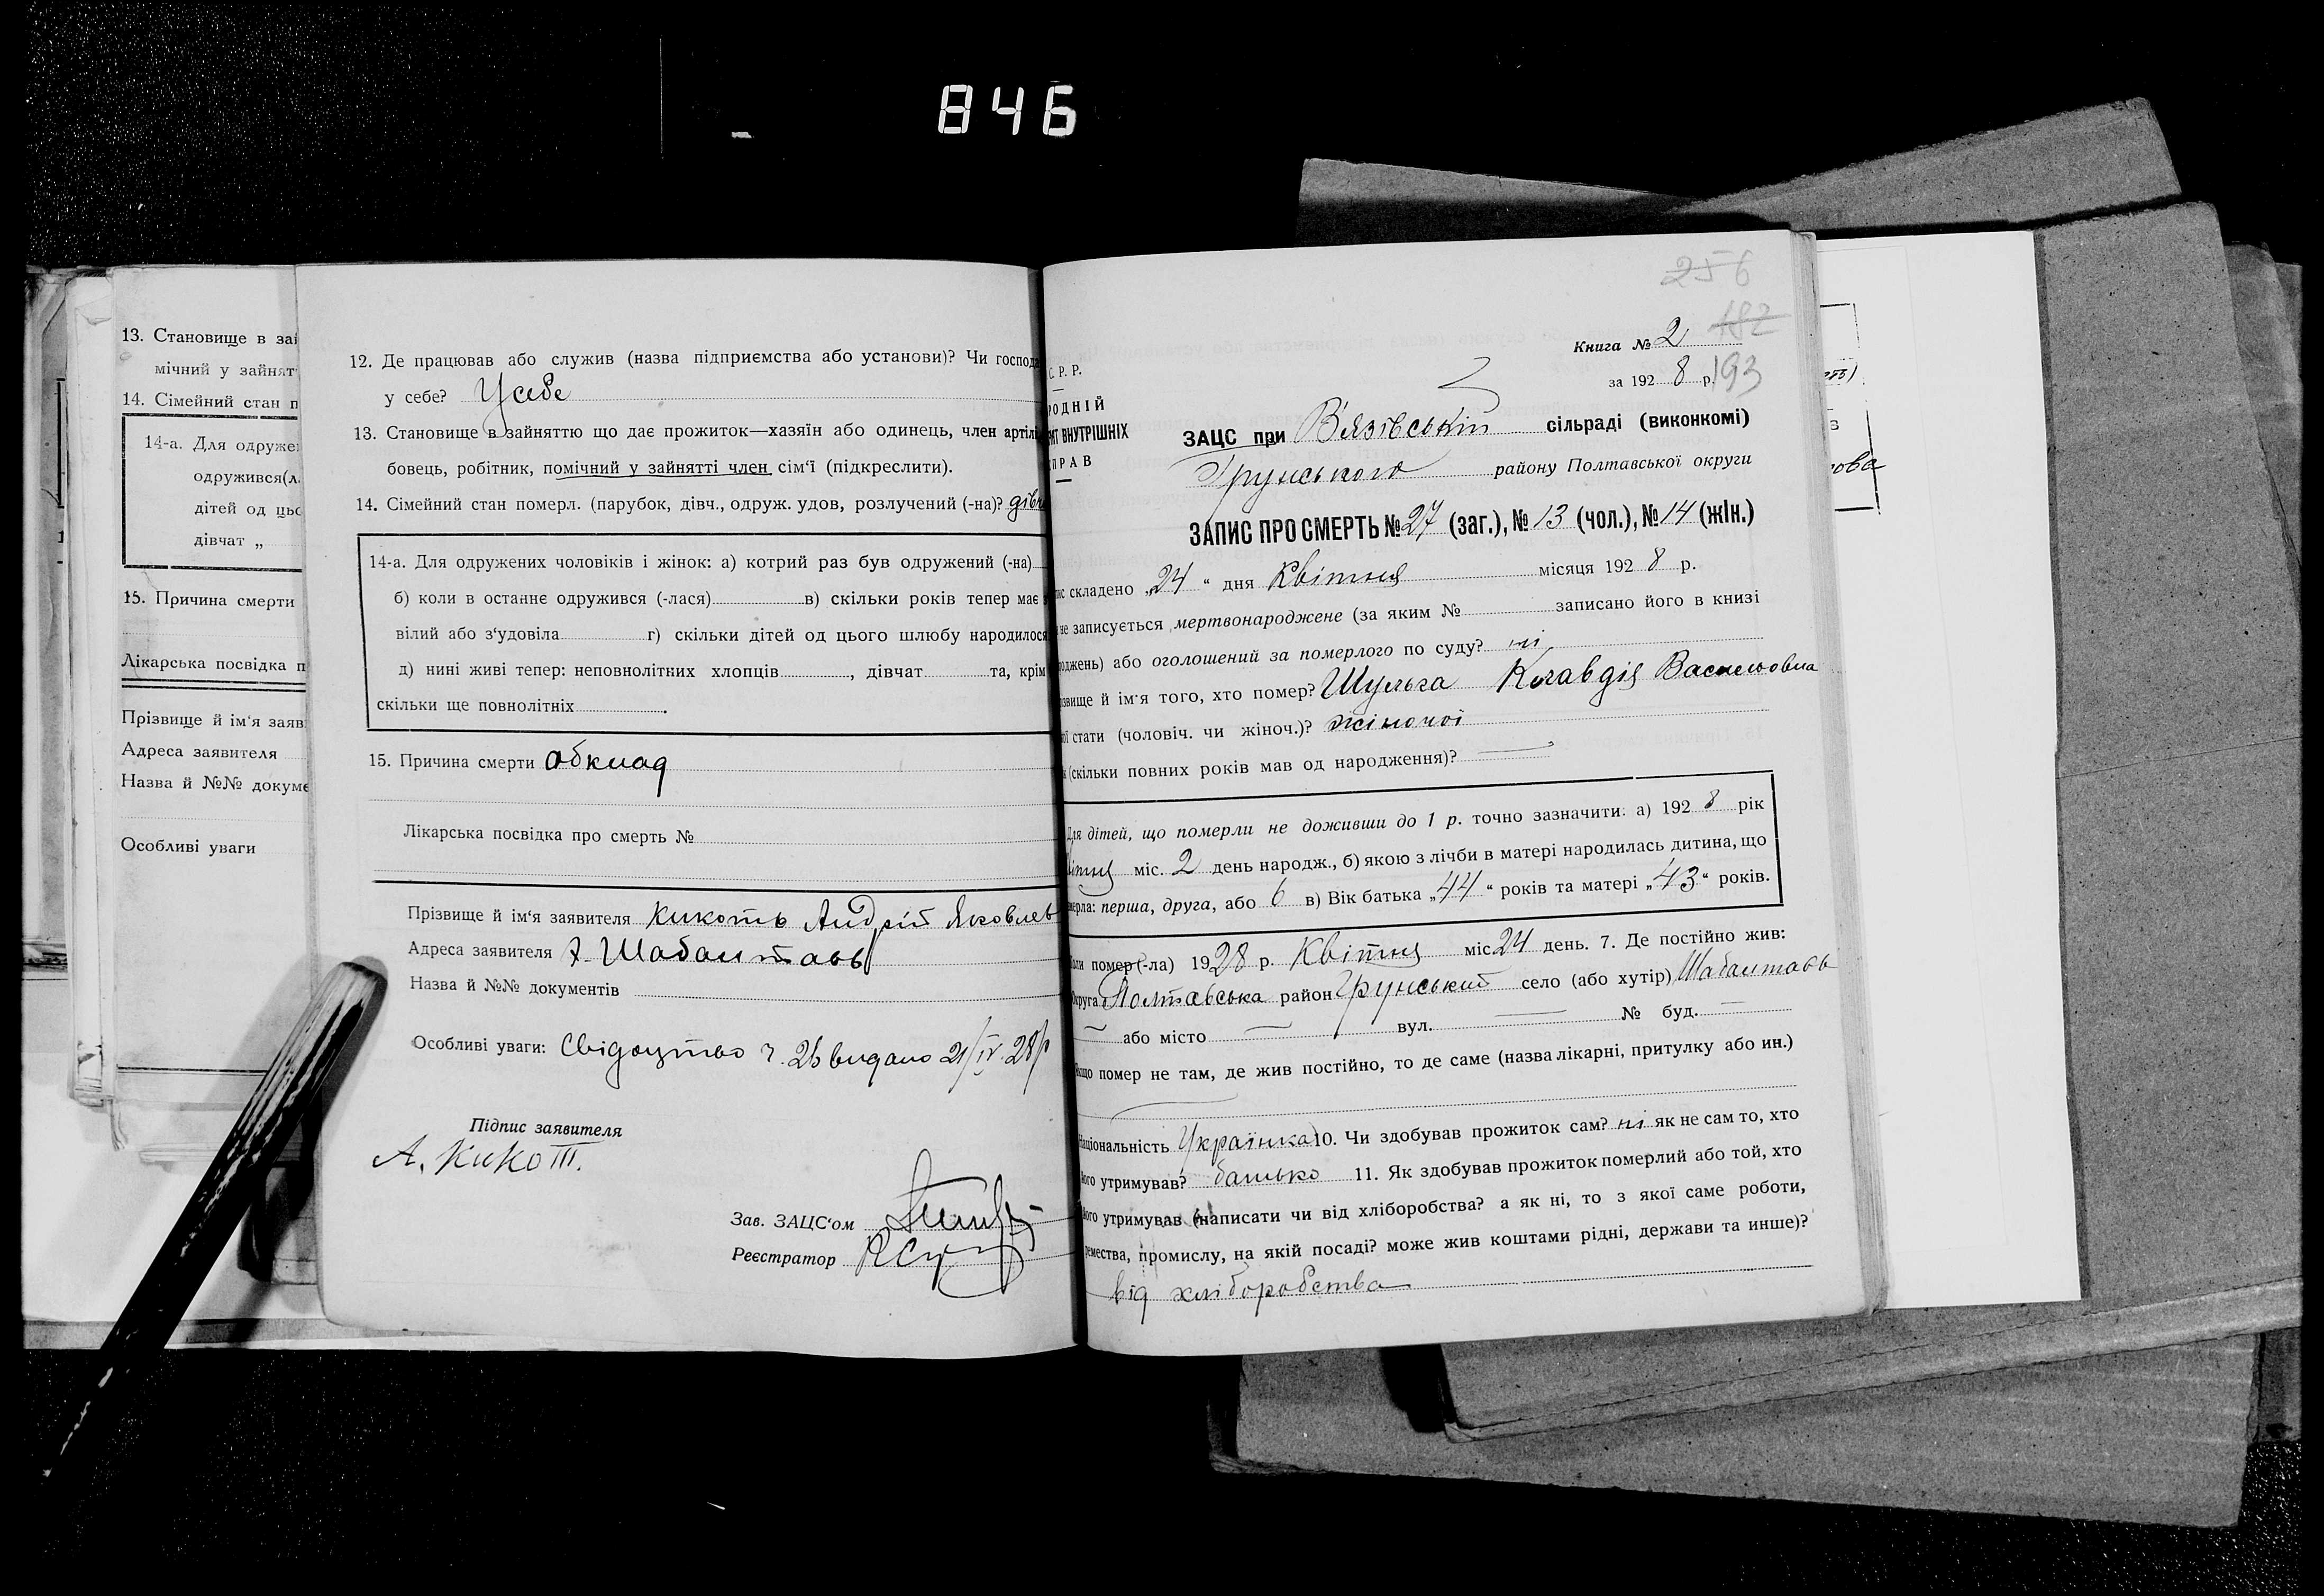 846
13. Становище в зай
мічний у зайнят
14. Сімейний стан п
14-а. Для одружен
одружився(л
дітей од цьо
дівчат „
15. Причина смерти
Лікарська посвідка п
Прізвище й ім'я заяв
Адреса заявителя
Назва й №№ докуме
Особливі уваги
12. Де працював або служив (назва підприємства або установи)? Чи господа
у себе? У себе
13. Становище в зайняттю що дає прожиток—хазяїн або одинець, член артіл
бовець, робітник, помічний у зайнятті член сім'ї (підкреслити).
14. Сімейний стан померл. (парубок, дівч., одруж. удов, розлучений (-на)? дівч
14-а. Для одружених чоловіків і жінок: а) котрий раз був одружений (-на)
б) коли в останнє одружився (-лася) в) скільки років тепер має
вілий або з'удовіла г) скільки дітей од цього шлюбу народилося
д) нині живі тепер: неповнолітних хлопців , дівчат та, крім
скільки ще повнолітніх .
15. Причина смерти обклад
Лікарська посвідка про смерть №
Прізвище й ім'я заявителя Кикоть Андрій Яковлев
Адреса заявителя х. Шабантавь
Назва й №№ документів
Особливі уваги: Свідоцтво ч. 25 видано 21/IV 28 р
Підпис заявителя
А. Кикот.
Зав. ЗАЦС'ом
Реєстратор
256
182
Книга № 2
за 192 8 р. 193
С. Р. Р.
РОДНІЙ
ВНУТРІШНІХ
ПРАВ
ЗАЦС при Вязівській сільраді (виконкомі)
Грунського району Полтавської округи
ЗАПИС ПРО СМЕРТЬ № 27 (заг.), № 13 (чол.), № 14 (жін.)
ис складено „24“ дня Квітня місяця 192 8 р.
не записується мертвонароджене (за яким № записано його в книзі
роджень) або оголошений за померлого по суду? ні
ізвище й ім'я того, хто помер? Шульга Клавдія Васильовна
ої стати (чоловіч. чи жіноч.)? жіночої
(скільки повних років мав од народження)? —
Для дітей, що померли не доживши до 1 р. точно зазначити: а) 192 8 рік
ітня міс. 2 день народж., б) якою з лічби в матері народилась дитина, що
мерла: перша, друга, або 6 в) Вік батька „44“ років та матері „43“ років.
оли помер (-ла) 1928 р. Квітня міс 24 день. 7. Де постійно жив:
Округа Полтавська район Грунський село (або хутір) Шабантавь
— або місто — вул. — № буд. —
кщо помер не там, де жив постійно, то де саме (назва лікарні, притулку або ин.)
Національність Українка 10. Чи здобував прожиток сам? ні як не сам то, хто
ого утримував? батько 11. Як здобував прожиток померлий або той, хто
ого утримував (написати чи від хліборобства? а як ні, то з якої саме роботи,
емества, промислу, на якій посаді? може жив коштами рідні, держави та инше)?
від хліборобства
ова